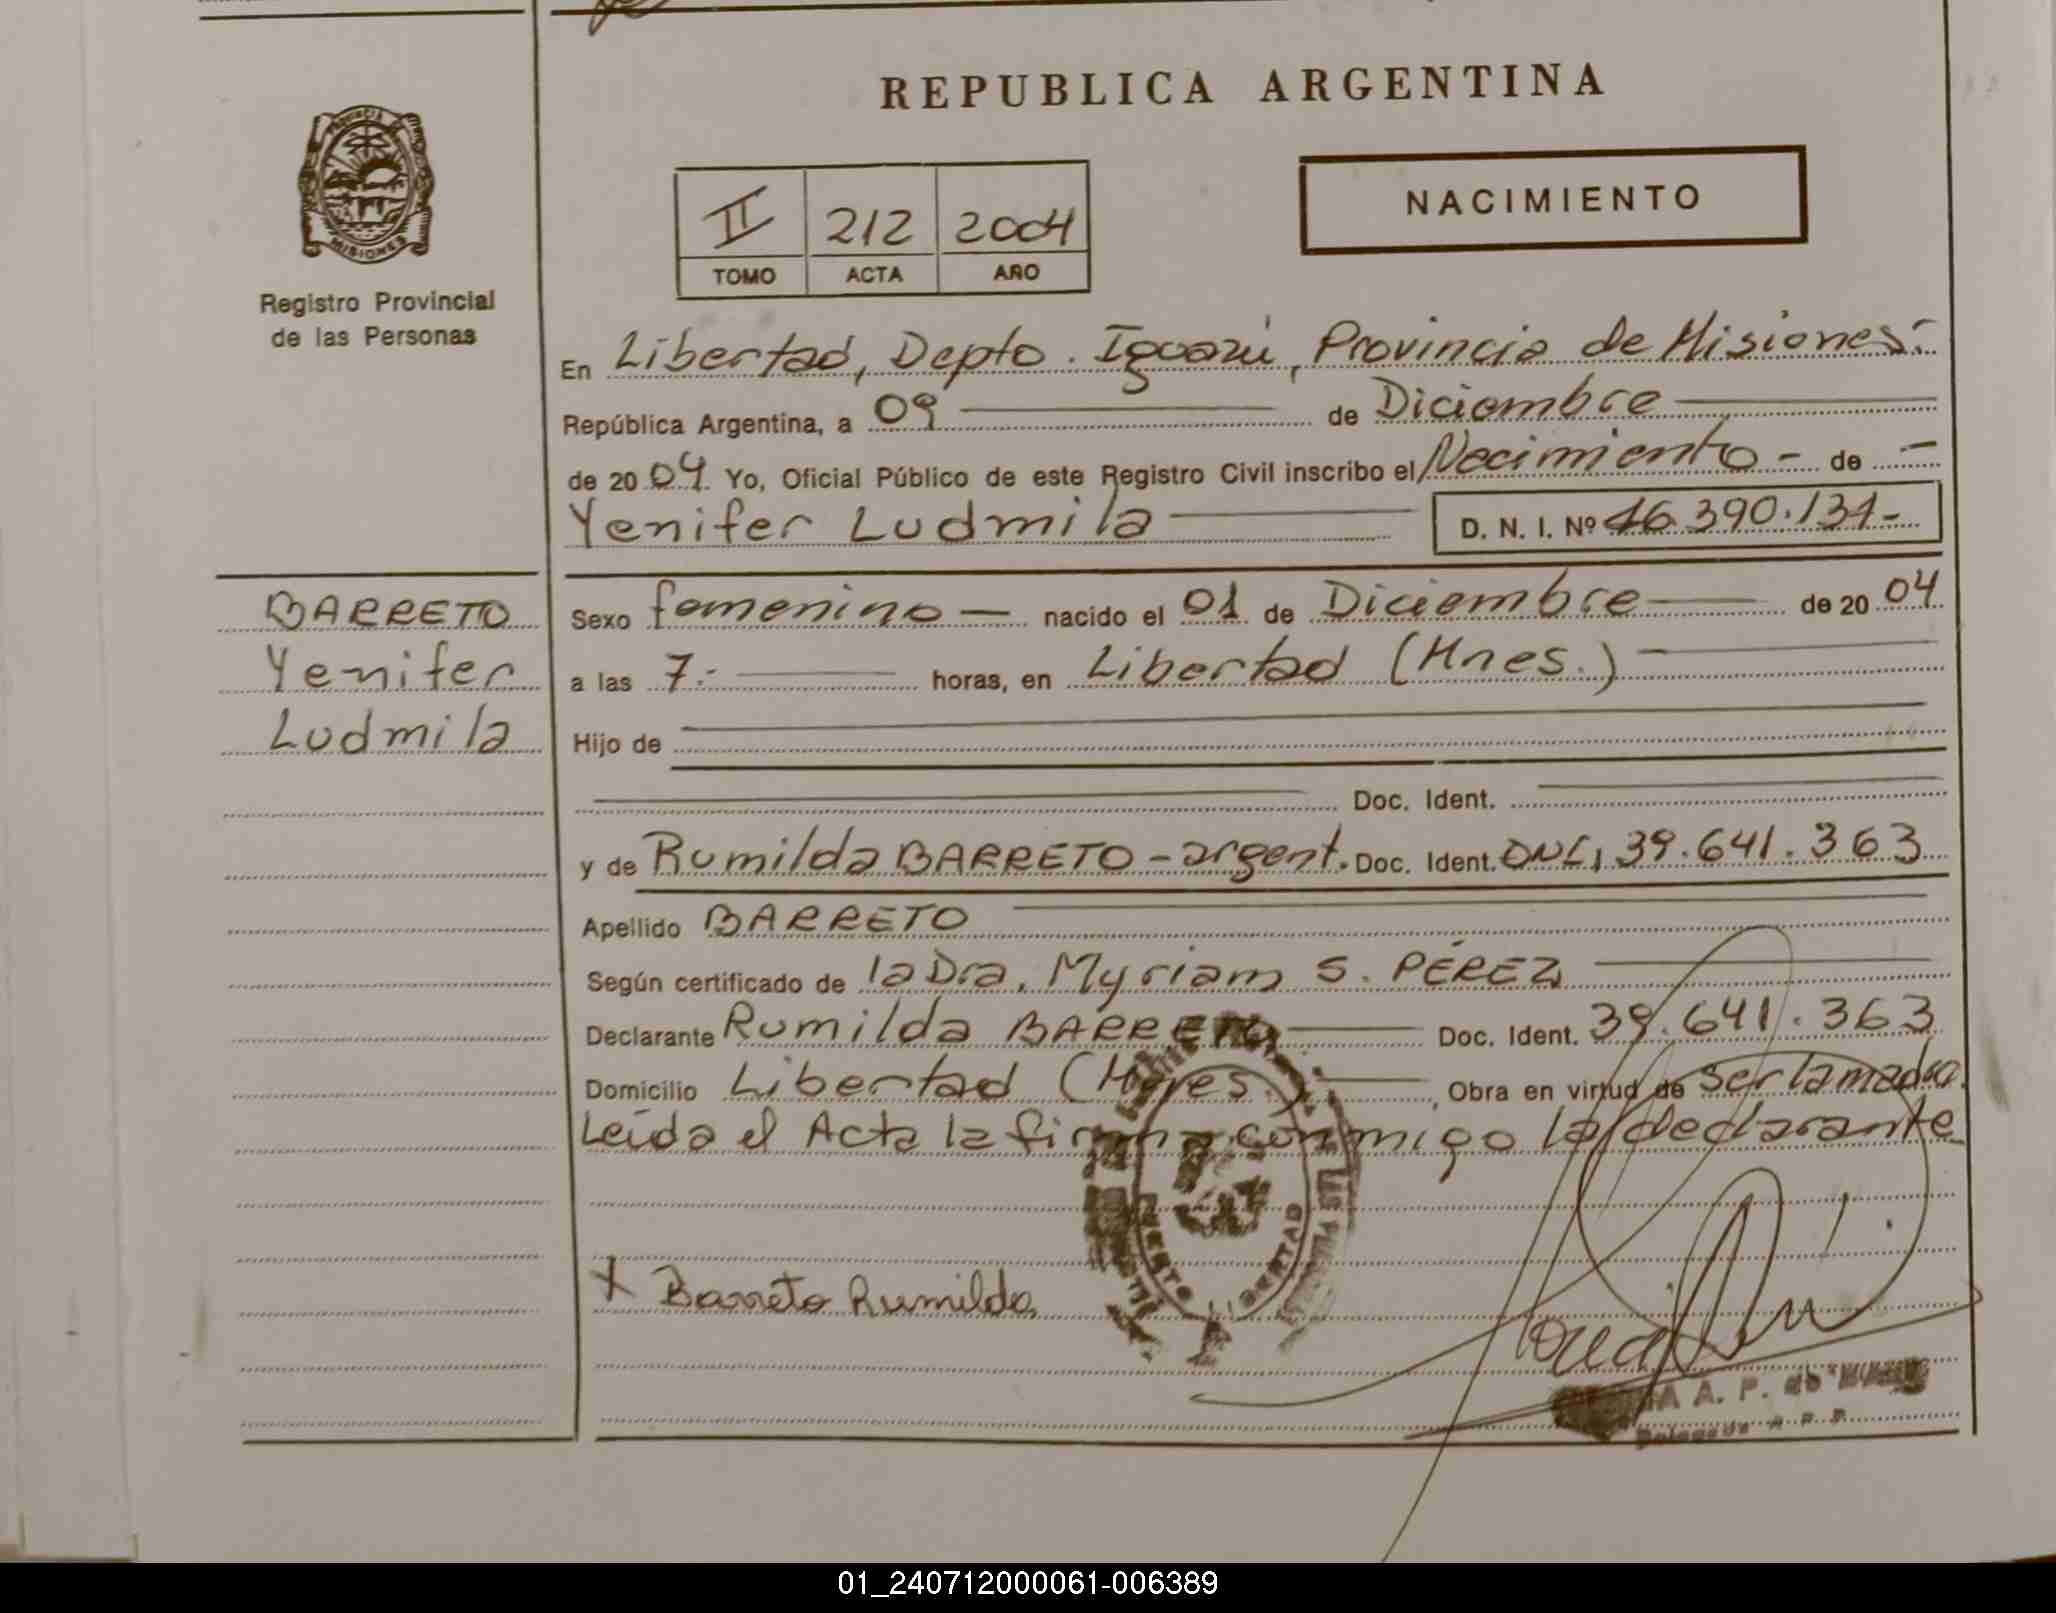 REPUBLICA ARGENTINA
PROVINCIA DE
MISIONES
Registro Provincial
de las Personas
II 212 2004
TOMO ACTA AÑO
NACIMIENTO
En Libertad, Depto. Iguazú, Provincia de Misiones.-
República Argentina, a 09 — de Diciembre —
de 20 04. Yo, Oficial Público de este Registro Civil inscribo el Nacimiento - de -
Yenifer Ludmila — D. N. I. Nº 46.390.131-
BARRETO
Yenifer
Ludmila
Sexo femenino — nacido el 01 de Diciembre — de 20 04
a las 7.- — horas, en Libertad (Mnes.) —
Hijo de —
— Doc. Ident. —
y de Rumilda BARRETO - argent. Doc. Ident. DNI, 39.641.363
Apellido BARRETO —
Según certificado de la Dra. Myriam S. PÉREZ —
Declarante Rumilda BARRETO — Doc. Ident. 39.641.363
Domicilio Libertad (Mnes.) —, Obra en virtud de ser la madre.
Leída el Acta la firma conmigo la declarante
PUERTO LIBERTAD
x Barreto Rumilda
A. P. de
Delegada
01_240712000061-006389